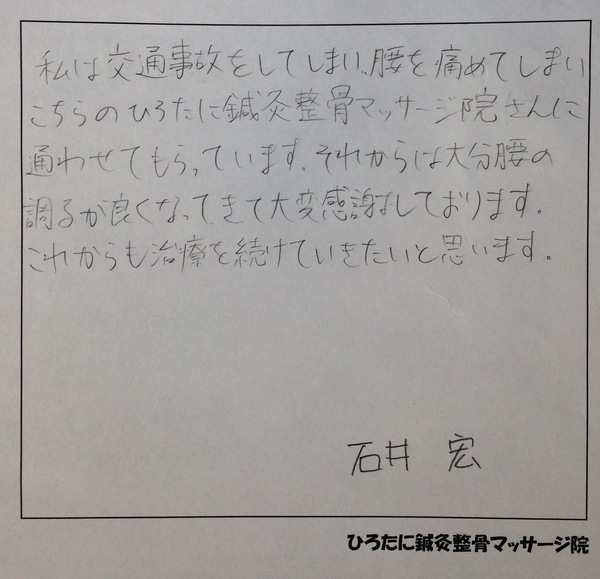 私は交通事故をしてしまい、腰を痛めてしまい
こちらのひろたに鍼灸整骨マッサージ院さんに
通わせてもらっています。それからは大分腰の
調るが良くなってきて大変感謝しております。
これからも治療を続けていきたいと思います。
石井 宏
ひろたに鍼灸整骨マッサージ院